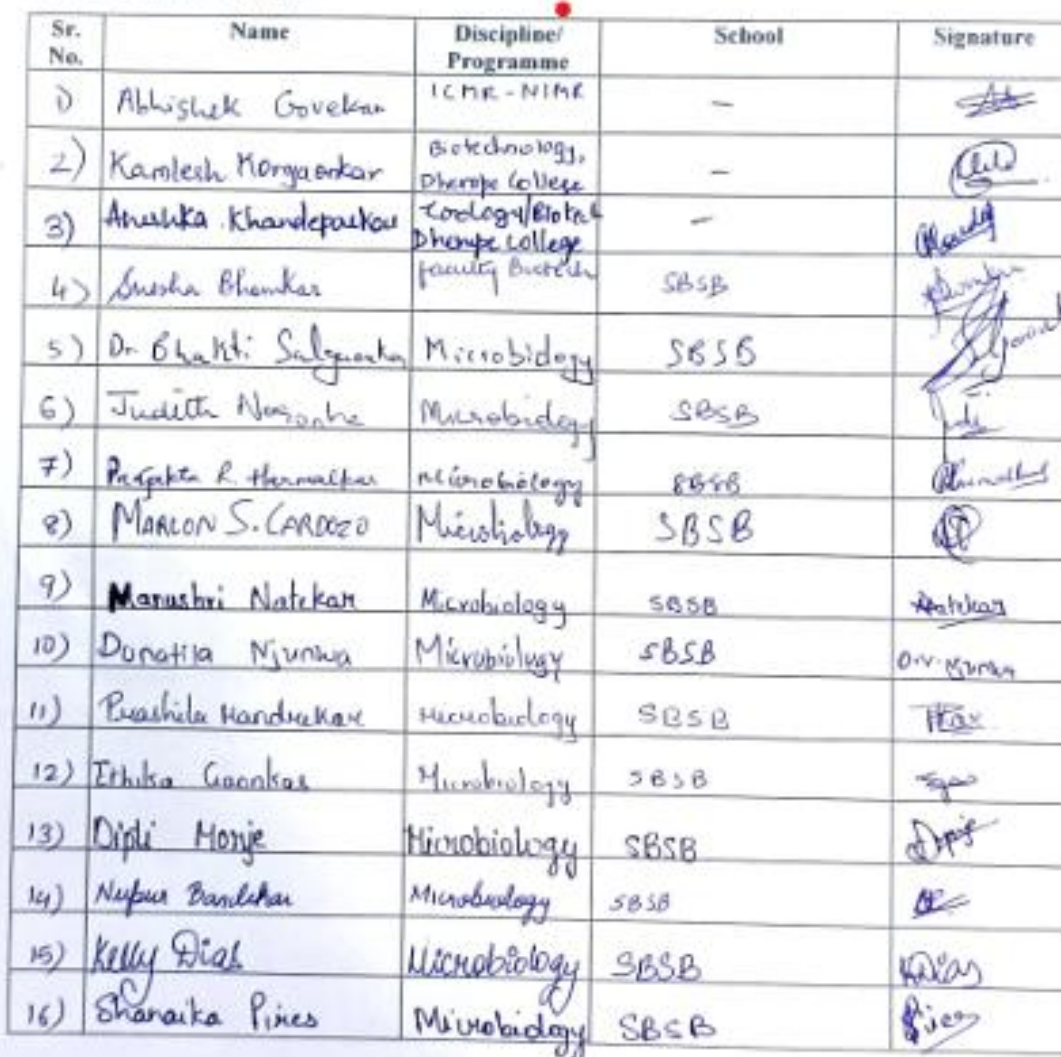 Sr. No. Name Discipline/ Programme School Signature
1) Abhishek Govekar ICMR-NIMR -
2) Kamlesh Korgaonkar Biotechnology, Dhempe College -
3) Anushka Khandeparkar Zoology/Biotech Dhempe College -
4) Bhomkar faculty Biotech SBSB
5) Dr. Bhakti Salgaonkar Microbiology SBSB
6) Judith Noronha Microbiology SBSB
7) Prajakta R. Harmalkar Microbiology SBSB
8) MARLON S. CARDOZO Microbiology SBSB
9) Manushri Natekar Microbiology SBSB Natekar
10) Donatila Njunwa Microbiology SBSB
11) Prashila Mandrekar Microbiology SBSB
12) Ithika Gaonkar Microbiology SBSB
13) Dipti Monje Microbiology SBSB
14) Nupur Bandekar Microbiology SBSB
15) Kelly Dias Microbiology SBSB KDias
16) Shanaika Pires Microbiology SBSB Pires